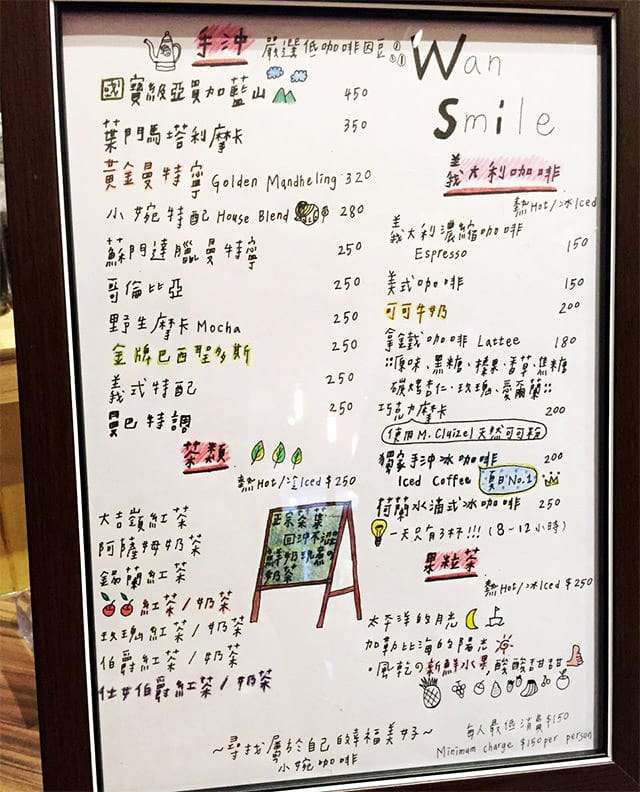 手沖 嚴選低咖啡因豆
國寶級亞買加藍山 450
葉門馬塔利摩卡 350
黃金曼特寧 Golden Mandheling 320
小婉特配 House Blend 280
蘇門達臘曼特寧 250
哥倫比亞 250
野生摩卡 Mocha 250
金牌巴西聖多斯 250
義式特配 250
曼巴特調 250
茶類
熱Hot/冰Iced $250
大吉嶺紅茶
阿薩姆奶茶
錫蘭紅茶
紅茶/奶茶
玫瑰紅茶/奶茶
伯爵紅茶/奶茶
仕女伯爵紅茶/奶茶
回沖不澀
奶茶
Wan
Smile
義大利咖啡
熱Hot/冰Iced
義大利濃縮咖啡
Espresso 150
美式咖啡 150
可可牛奶 200
拿鐵咖啡 Lattee 180
::原味、黑糖、榛果、香草、焦糖
碳烤杏仁、玫瑰、愛爾蘭::
巧克力摩卡 200
使用M. Cluizel天然可可粉
獨家手沖冰咖啡 200
Iced Coffee 夏日No.1
荷蘭水滴式冰咖啡 250
一天只有3杯!!! (8~12小時)
果粒茶
熱Hot/冰Iced $250
太平洋的月光
加勒比海的陽光
・風乾の新鮮水果,酸酸甜甜
~尋找屬於自己的幸福美好~
小婉咖啡
每人最低消費$150
Minimum charge $150 per person